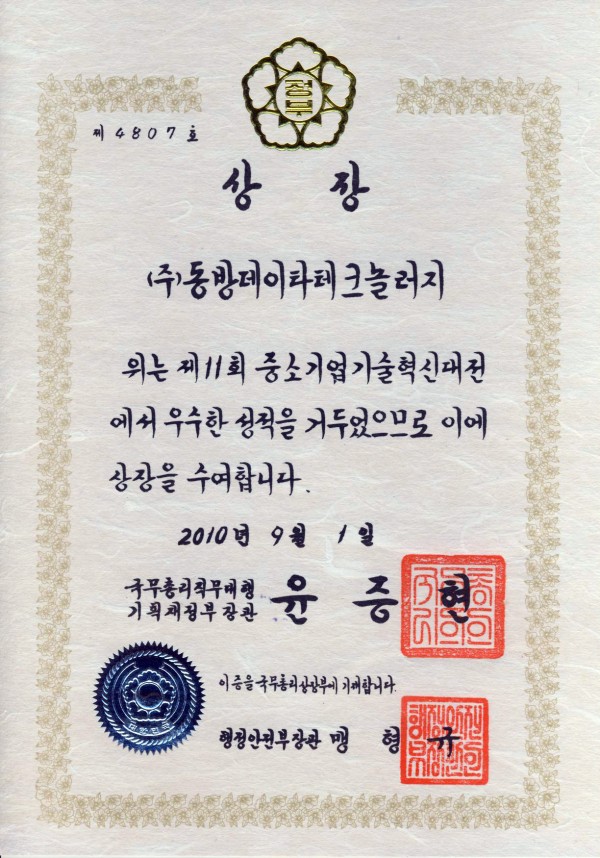 정부
제 4807 호
상 장
(주)동방데이타테크놀러지
위는 제11회 중소기업기술혁신대전
에서 우수한 성적을 거두었으므로 이에
상장을 수여합니다.
2010년 9월 1일
국무총리직무대행
기획재정부장관 윤 증 현
이 증을 국무총리상장부에 기재합니다.
행정안전부장관 맹 형 규